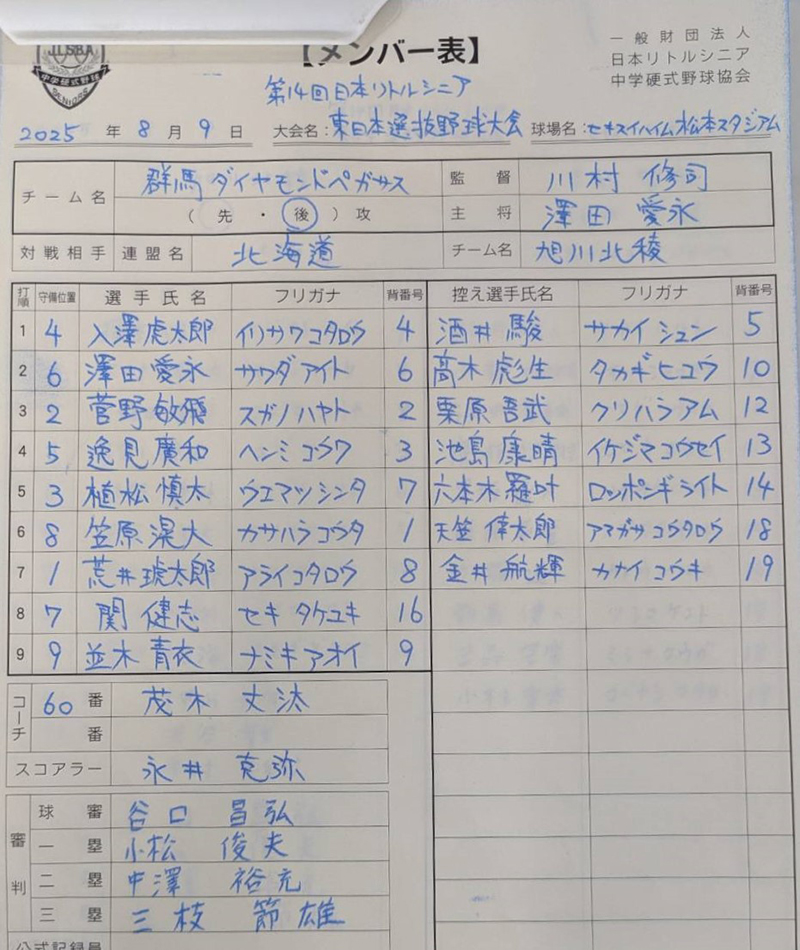 JLSBA
中学硬式野球
【メンバー表】
一般財団法人
日本リトルシニア
中学硬式野球協会
第14回日本リトルシニア
2025 年 8 月 9 日 大会名：東日本選抜野球大会 球場名：セキスイハイム松本スタジアム
チーム名 群馬ダイヤモンドペガサス 監督 川村 修司
（先・後）攻 主将 澤田 愛永
対戦相手 連盟名 北海道 チーム名 旭川北稜
打順 守備位置 選手氏名 フリガナ 背番号 控え選手氏名 フリガナ 背番号
1 4 入澤虎太郎 イリサワコタロウ 4 酒井 駿 サカイ シュン 5
2 6 澤田 愛永 サワダ アイト 6 高木 彪生 タカギ ヒュウ 10
3 2 菅野 敏飛 スガノ ハヤト 2 栗原吾武 クリハラ アム 12
4 5 逸見 廣和 ヘンミ コウワ 3 池島 康晴 イケジマコウセイ 13
5 3 植松 慎太 ウエマツシンタ 7 六本木 羅叶 ロッポンギライト 14
6 8 笠原 滉大 カサハラ コウタ 1 天笠 倖太郎 アマガサ コウタロウ 18
7 1 荒井琥太郎 アライコタロウ 8 金井 航輝 カナイ コウキ 19
8 7 関 健志 セキ タケユキ 16
9 9 並木 青衣 ナミキ アオイ 9
コーチ 60 番 茂木 丈汰
番
スコアラー 永井 克弥
審判 球審 谷口 昌弘
一塁 小松 俊夫
二塁 中澤 裕充
三塁 三枝 節雄
公式記録員